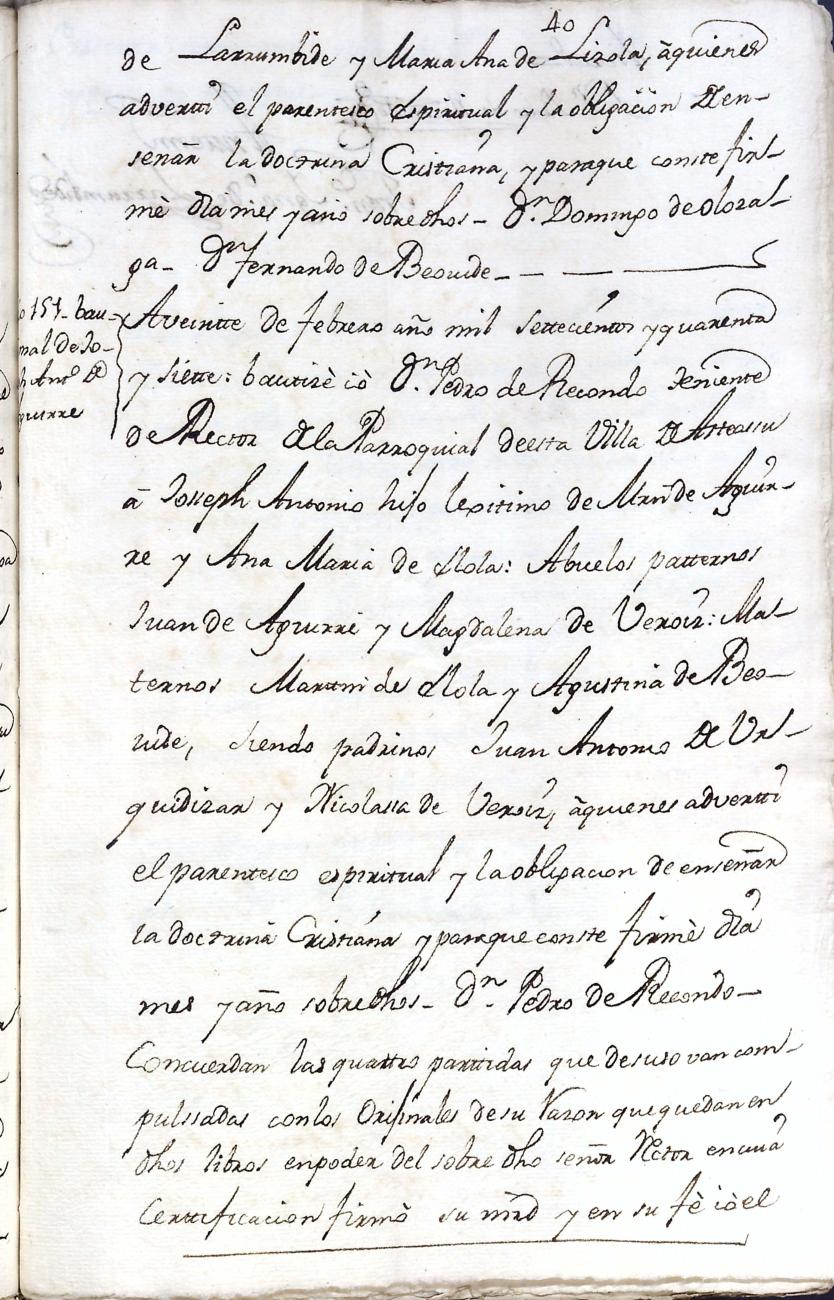 40
de Larrumbide y Maria Ana de Lizola, à quienes
advertti el parentesco Espiritual y la obligación de en-
señar la doctrina Cristiana, y paraque conste fir-
mè dia mes y año sobredhos_ Dn. Domingo de oloza-
ga_ Dn Fernando de Beovide_
151_ bau-
mal de Jo-
h Antº de
guirre
A veintte de febrero año mil settecienttos y quarenta
y siette: bautizè iò Dn. Pedro de Recondo Teniente
de Rector de la Parroquial de esta Villa de Asteassu
à Joseph Antonio hijo lexitimo de Mrn de Aguir-
re y Ana Maria de Llola: Abuelos patternos
Juan de Aguirre y Magdalena de Veroiz: Ma-
ternos Marttin de Llola y Agustina de Beo-
vide, siendo padrinos Juan Antonio de Ur-
quidizar y Nicolassa de Veroiz, à quienes advertti
el parentesco espiritual y la obligacion de enseñar
la doctrina Cristiana y paraque conste firmè dia
mes y año sobredhos_ Dn. Pedro de Recondo_
Concuerdan las quattro parttidas que desuso van com-
pulssadas con los Orijinales de su Razon que quedan en
dhos libros en poder del sobre dho señor Rector en cuia
Certtificacion firmò su mrd y en su fè iò el